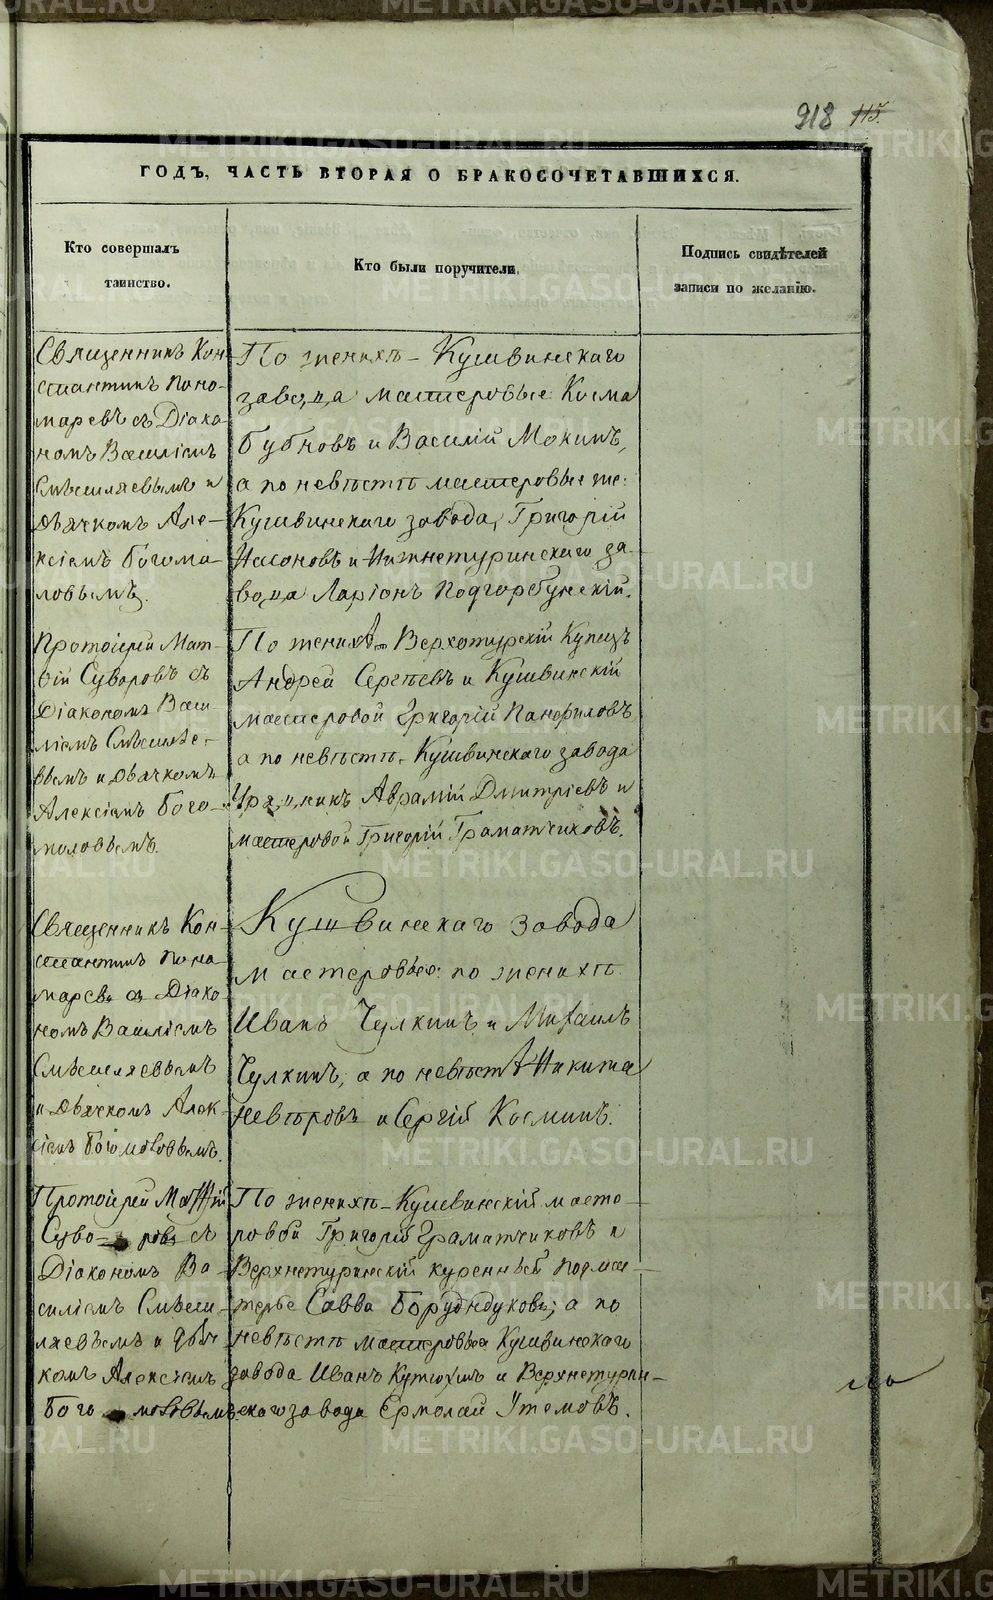 918 115.
ГОДЪ, ЧАСТЬ ВТОРАЯ О БРАКОСОЧЕТАВШИХСЯ.
Кто совершалъ
таинство.
Кто были поручители.
Подпись свидѣтелей
записи по желанію.
Священникъ Кон-
стантинъ Поно-
маревъ съ Діако-
номъ Василіемъ
Смѣшляевымъ и
дьячкомъ Але-
ксіемъ Богомо-
ловымъ.
По женихѣ - Кушвинскаго
завода мастеровые Косма
Бубновъ и Василій Мокинъ,
а по невѣстѣ мастеровые же:
Кушвинскаго завода, Григорій
Насоновъ и Нижнетуринскаго за-
вода Ларіонъ Подгорбунскій.
Протоіерей Мат-
ѳій Суворовъ съ
Діакономъ Васи-
ліемъ Смѣшляе-
вымъ и дьячкомъ
Алексіемъ Бого-
моловымъ.
По женихѣ - Верхотурскій Купецъ
Андрей Сергѣевъ и Кушвинскій
мастеровой Григорій Панфиловъ
а по невѣстѣ - Кушвинскаго завода
Урядникъ Аврамій Дмитріевъ и
мастеровой Григорій Граматчиковъ.
Священникъ Кон-
стантинъ Поно-
маревъ съ Діако-
номъ Василіемъ
Смѣшляевымъ
и дьячкомъ Алек-
сіемъ Богомоловымъ.
Кушвинскаго завода
мастеровые: по женихѣ
Иванъ Чулкинъ и Михаилъ
Чулкинъ, а по невѣстѣ Никита
Невѣровъ и Сергій Косминъ.
Протоіерей Матѳій
Суворовъ съ
Діакономъ Ва-
силіемъ Смѣш-
ляевымъ и дьяч-
комъ Алексіемъ
Богомоловымъ
По женихѣ - Кушвинскій масте-
ровой Григорій Граматчиковъ и
Верхнетуринскій куренный подмас-
терье Савва Борундуковъ; а по
невѣстѣ мастеровые Кушвинскаго
завода Иванъ Кутюхинъ и Верхнетурин-
скаго завода Ермолай Утемовъ.
METRIKI.GASO-URAL.RU